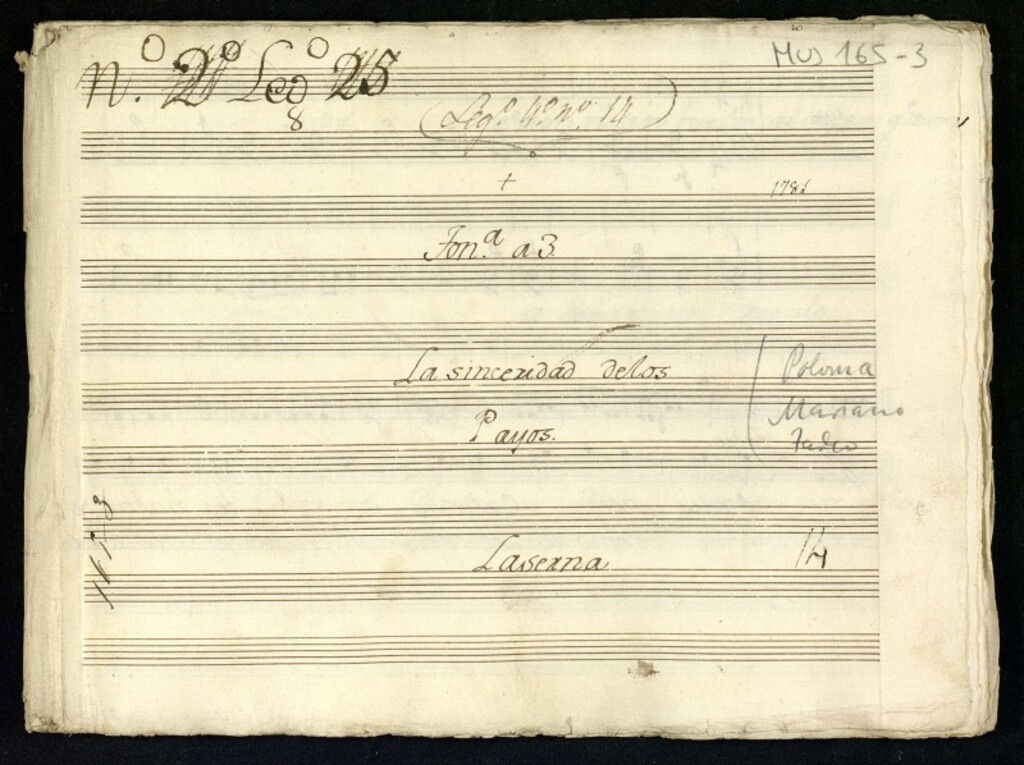 Nº. 2º Legº 25
8
MUS 165-3
(Legº. 4º nº 14)
+
178
Ton.ª a 3
La sinceridad delos
Payos.
Polonia
Mariano
Tadeo
165-3
Laserna
14